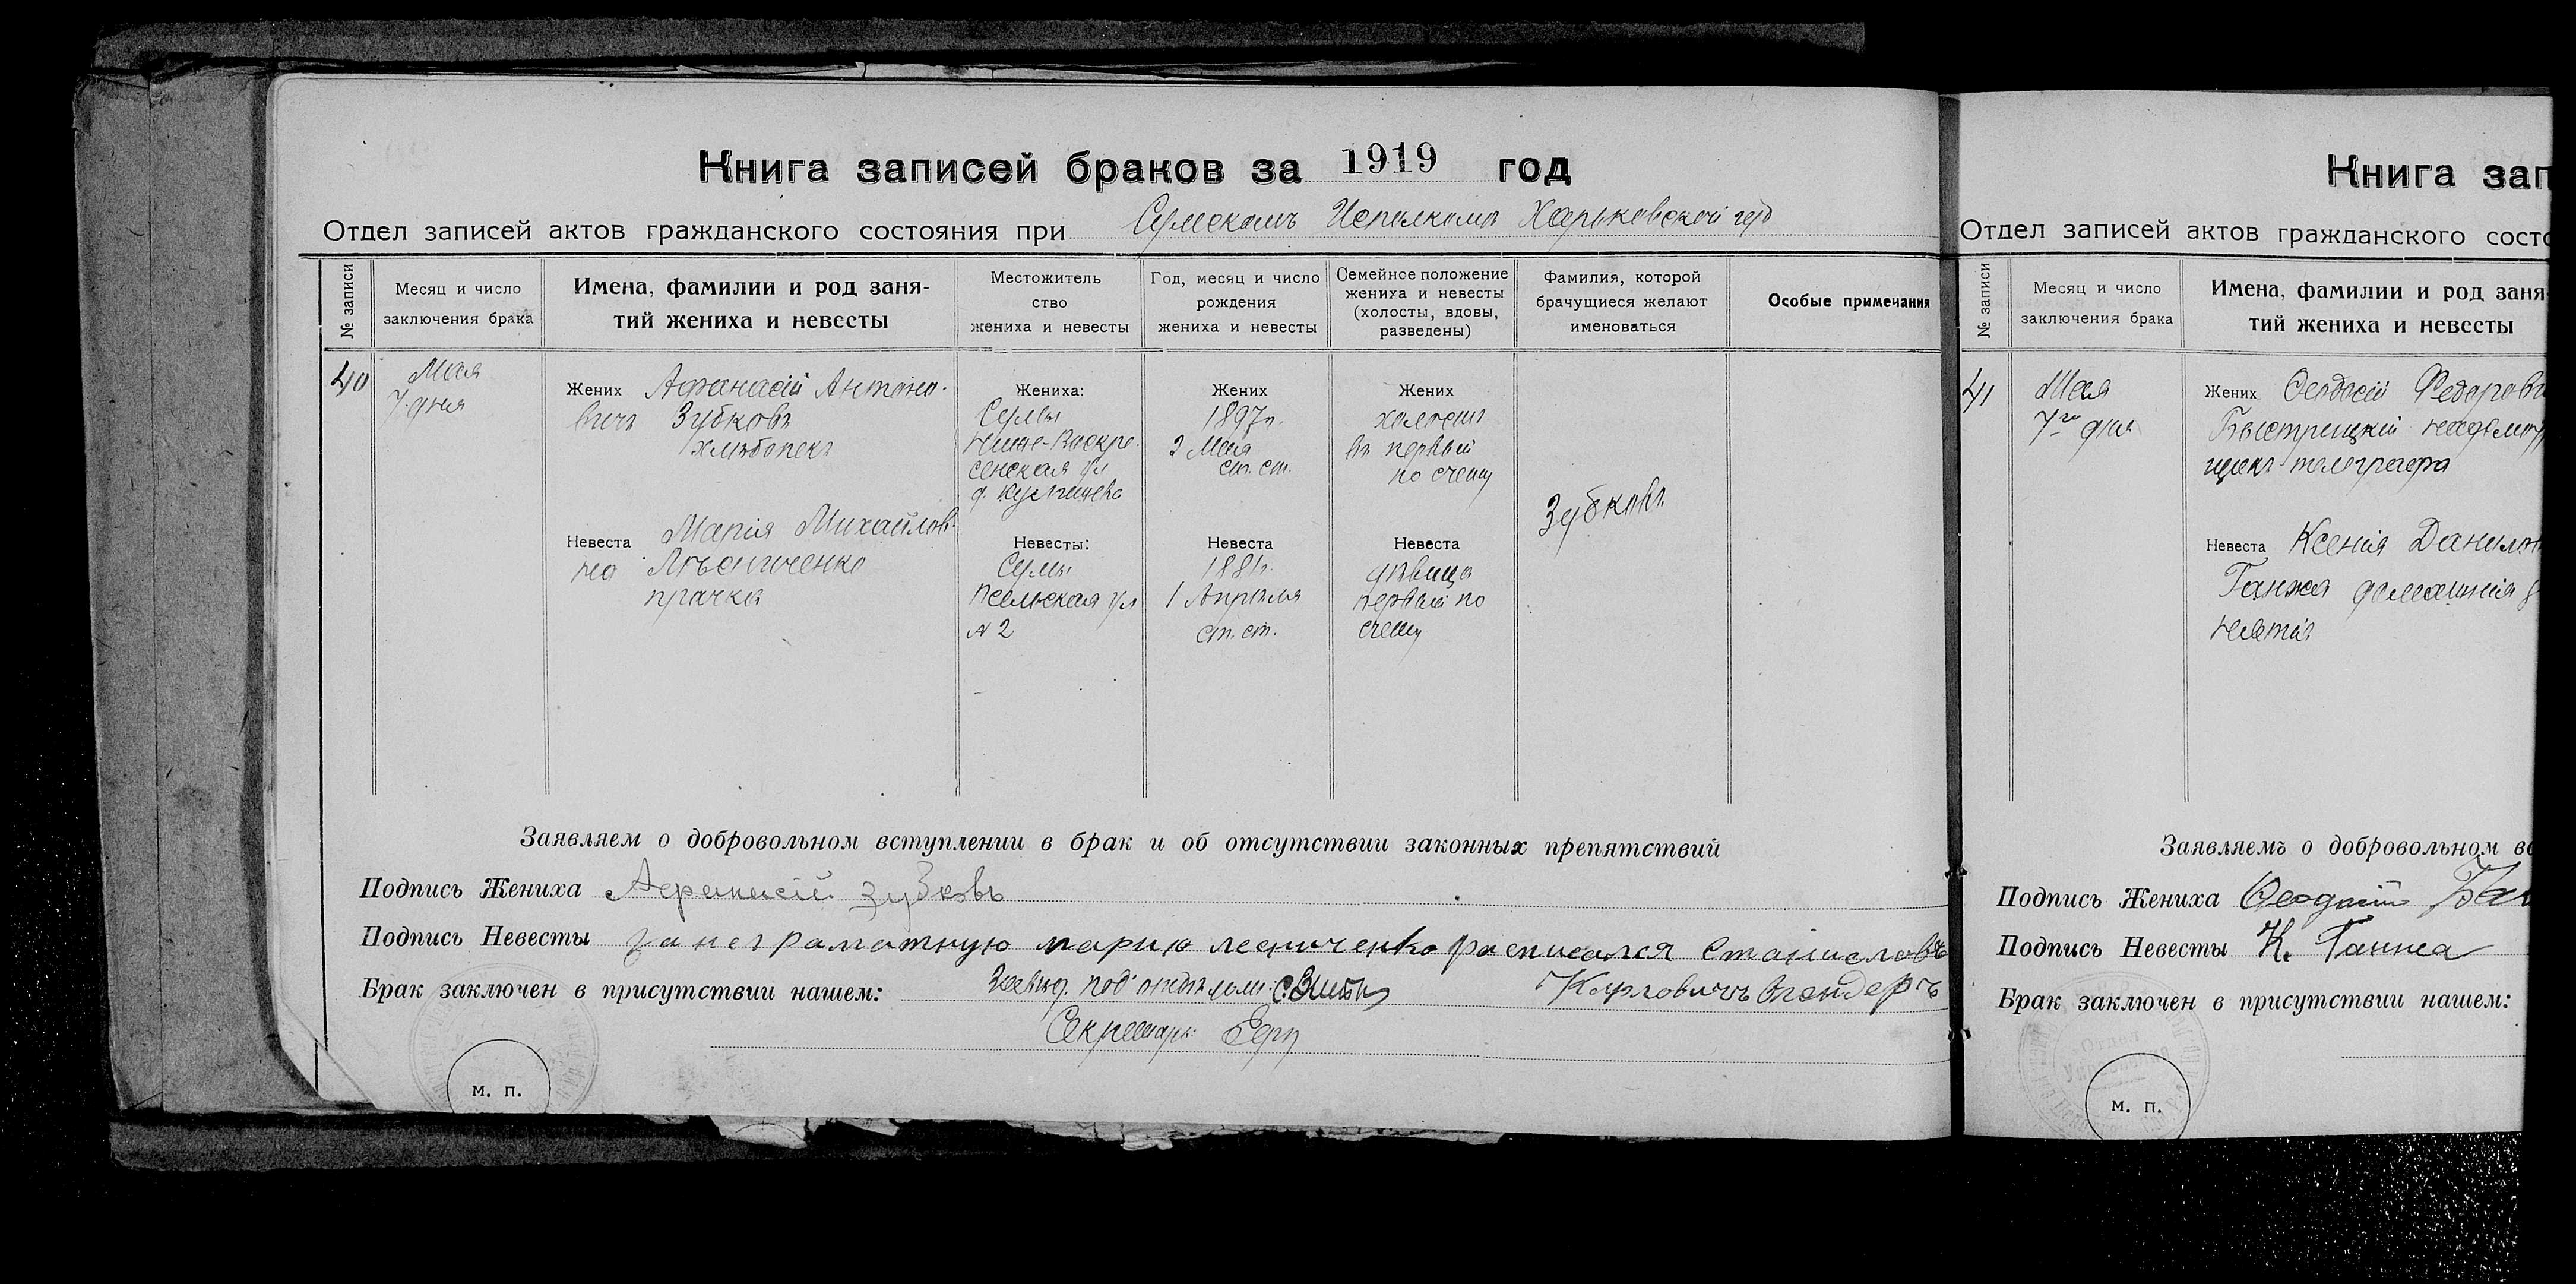 Книга записей браков за 1919 год
Отдел записей актов гражданского состояния при Сумскомъ Исполкомъ Харьковской губ
№ записи
Месяц и число
заключения брака
Имена, фамилии и род заня-
тий жениха и невесты
Местожитель
ство
жениха и невесты
Год, месяц и число
рождения
жениха и невесты
Семейное положение
жениха и невесты
(холосты, вдовы,
разведены)
Фамилия, которой
брачущиеся желают
именоваться
Особые примечания
40
Мая
7 дня
Жених Афанасій Антоно-
вичъ Зубковъ
хлѣбопекъ
Невеста Марія Михайлов-
на
прачка
Жениха:
Сумы
Нижне-Воскре-
сенская ул
д.
Невесты:
Сумы
Псельская ул
№ 2
Жених
1897г.
2 Мая
ст. ст.
Невеста
1881г.
1 Апрѣля
ст. ст.
Жених
холостъ
въ первый
по счету
Невеста
дѣвица
первый по
счету
Зубковъ
Заявляем о добровольном вступлении в брак и об отсутствии законных препятствий
Подпись Жениха Афанасій Зубковъ
Подпись Невесты за неграматную марию лесниченко расписался
Брак заключен в присутствии нашем: Завѣд. под отдѣломъ
Карловичъ
Секретарь
м. п.
Книга зап
Отдел записей актов гражданского состо
№ записи
Месяц и число
заключения брака
Имена, фамилии и род заня-
тий жениха и невесты
41
Мая
7го дня
Жених Феодосій Федорови
Быстрицкій
щикъ телеграфа
Невеста Ксенія Данилов
Ганжа домашнія
Заявляемъ о добровольном вс
Подпись Жениха Феодосій
Подпись Невесты К. Ганжа
Брак заключен в присутствии нашем:
Отдел
м. п.